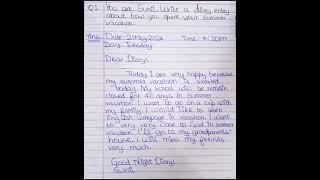 Q1. You are Sunil. Write a diary entry
about how you spent your summer
vacation.
Ans. Date: 21 May 2024 Time: 4:30pm
Day: Tuesday
Dear Diary,
Today I am very happy because
my summer vacation is started
today. My school will be remain
closed for 40 days in summer
vacation. I want to go on a trip with
my family. I would like to learn
English language in vacation. I want
to very very close to God in summer
vacation. I'll go to my grandparents'
house. I will miss my friends
very much.
Good Night Diary,
Sunil